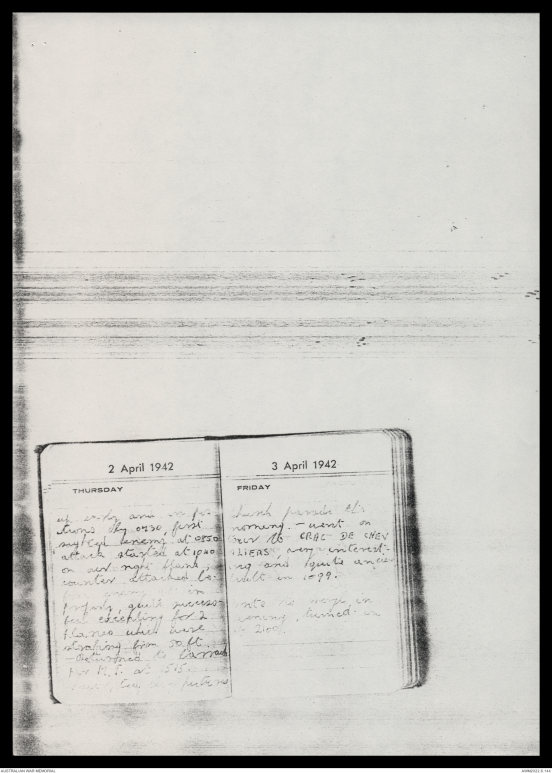 2 April 1942
THURSDAY
up early and in po-
tions by 0730, first
sighted enemy at 0850
attack started at 1040
on our right flank,
counter attacked
in
quite success-
ful excepting for 2
planes which were
strafing from 50 ft.
- Returned to
for M.T. at 1515.
3 April 1942
FRIDAY
church parade this
morning. - went on
over to CRAC DE CHEV
ALIERS, very interest-
ing and quite ancient
built in 1099.
in
evening, turned in
2100.
AUSTRALIAN WAR MEMORIAL